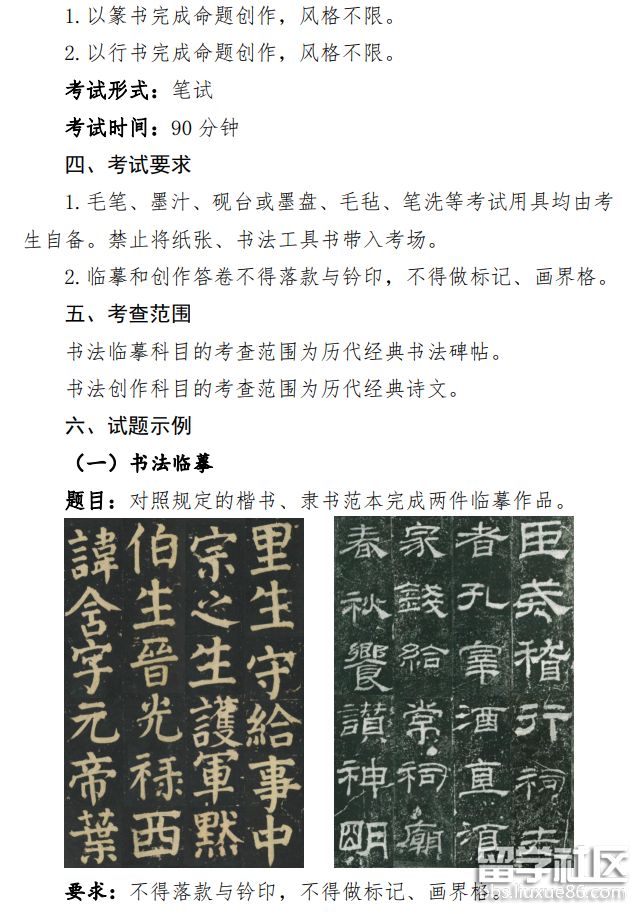 1.以篆书完成命题创作，风格不限。
2.以行书完成命题创作，风格不限。
考试形式：笔试
考试时间：90 分钟
四、考试要求
1.毛笔、墨汁、砚台或墨盘、毛毡、笔洗等考试用具均由考
生自备。禁止将纸张、书法工具书带入考场。
2.临摹和创作答卷不得落款与钤印，不得做标记、画界格。
五、考查范围
书法临摹科目的考查范围为历代经典书法碑帖。
书法创作科目的考查范围为历代经典诗文。
六、试题示例
（一）书法临摹
题目：对照规定的楷书、隶书范本完成两件临摹作品。
里生守給事中
宗之生護軍黙
伯生晉光禄西
諱含字元帝葉
臣稽行祠
者孔酒直須
家錢給常祠廟
春秋饗讃神明
要求：不得落款与钤印，不得做标记、画界格。
留学社区
bbs.liuxue86.com